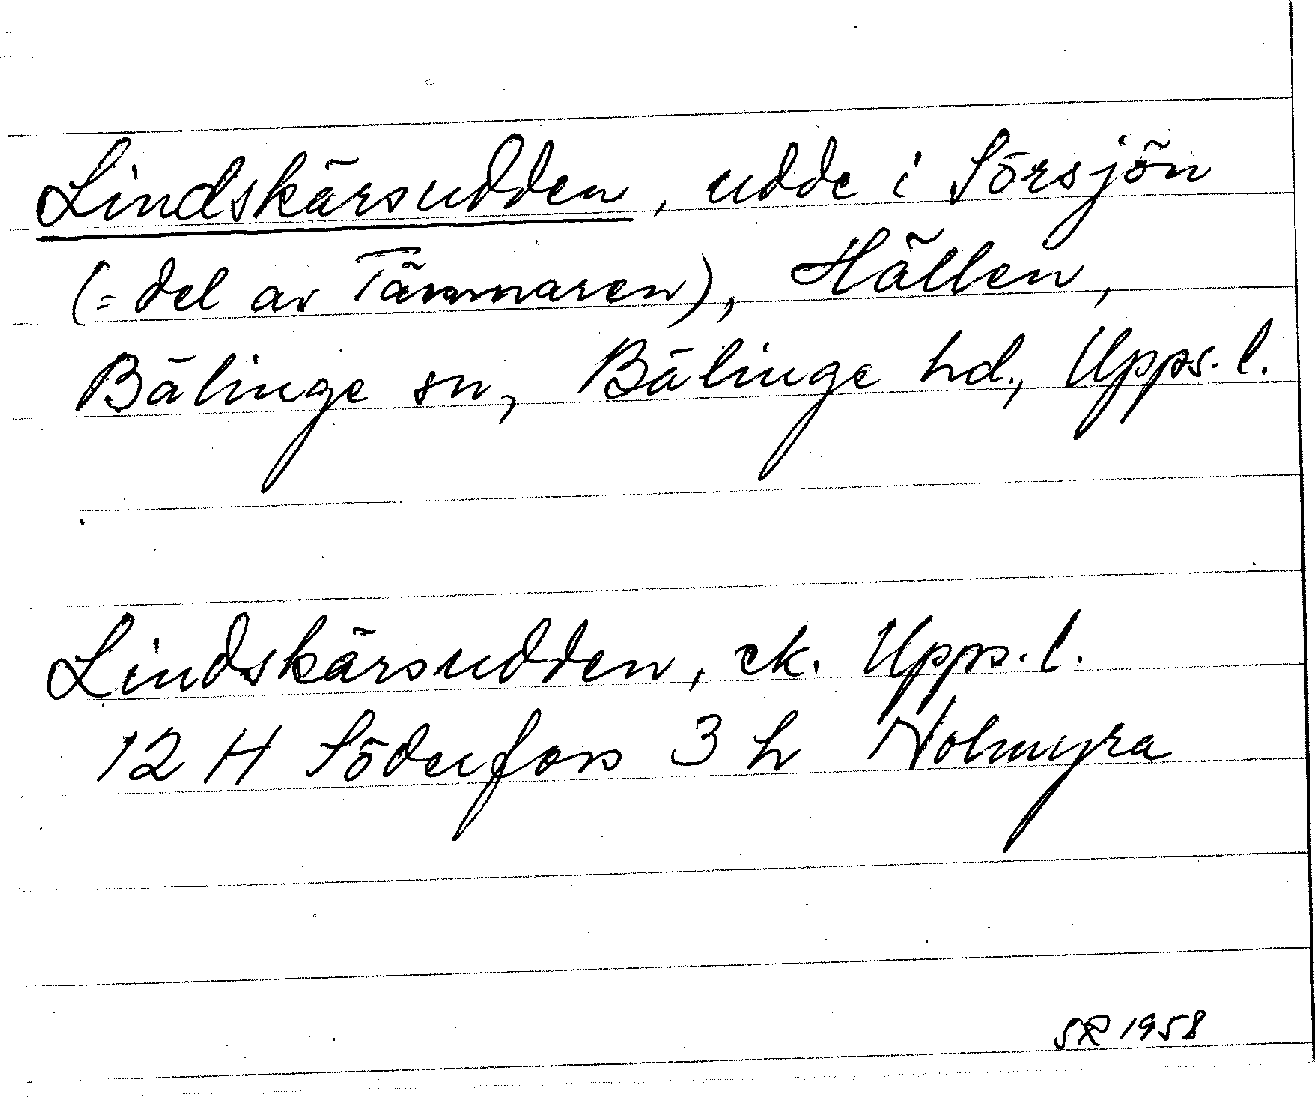 Lindskärsudden, udde i Sörsjön
(= del av Tämnaren), Hällen,
Bälinge sn, Bälinge hd., Upps. l.
Lindskärsudden, ek. Upps. l.
12 H Söderfors 3 h Nolmyra
SR 1958